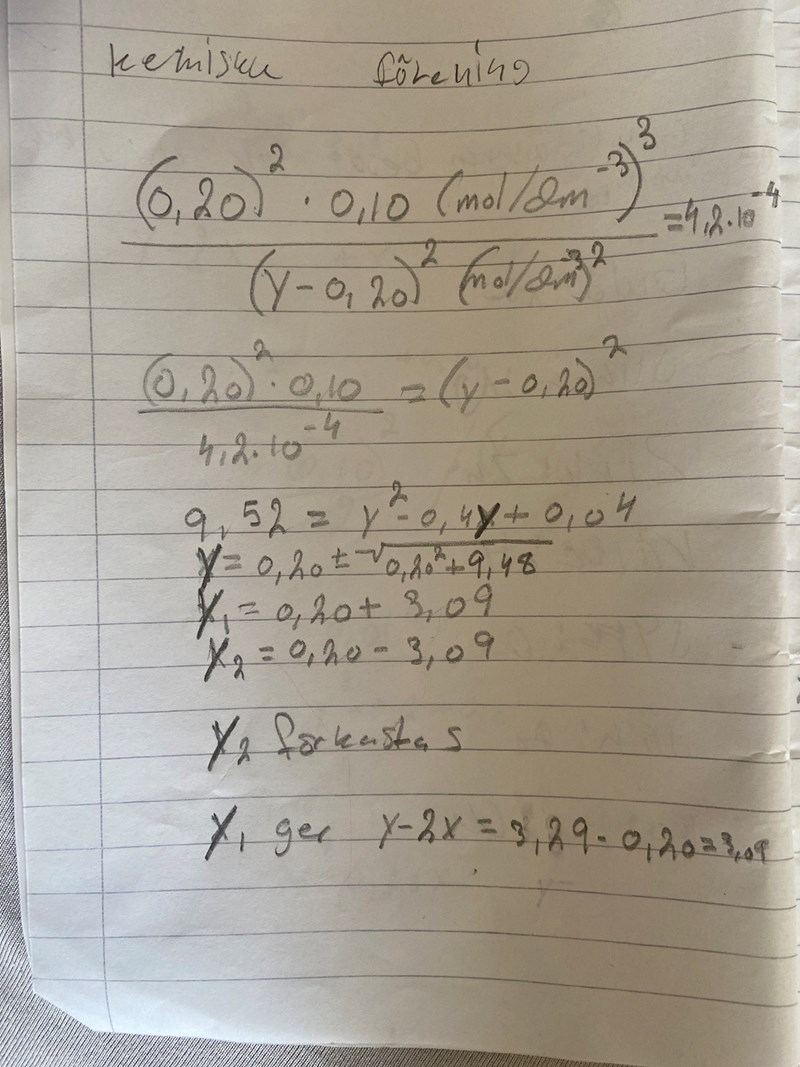 kemiska förening
(0,20)² · 0,10 (mol/dm⁻³)³
(y-0,20)² (mol/dm⁻³)²
=4,2·10⁻⁴
(0,20)² · 0,10 = (y-0,20)²
4,2·10⁻⁴
9,52 = y²-0,4y+0,04
y= 0,20 ± √0,20²+9,48
y₁= 0,20+ 3,09
y₂ = 0,20 - 3,09
y₂ förkastas
y₁ ger y-2x = 3,29-0,20=3,09